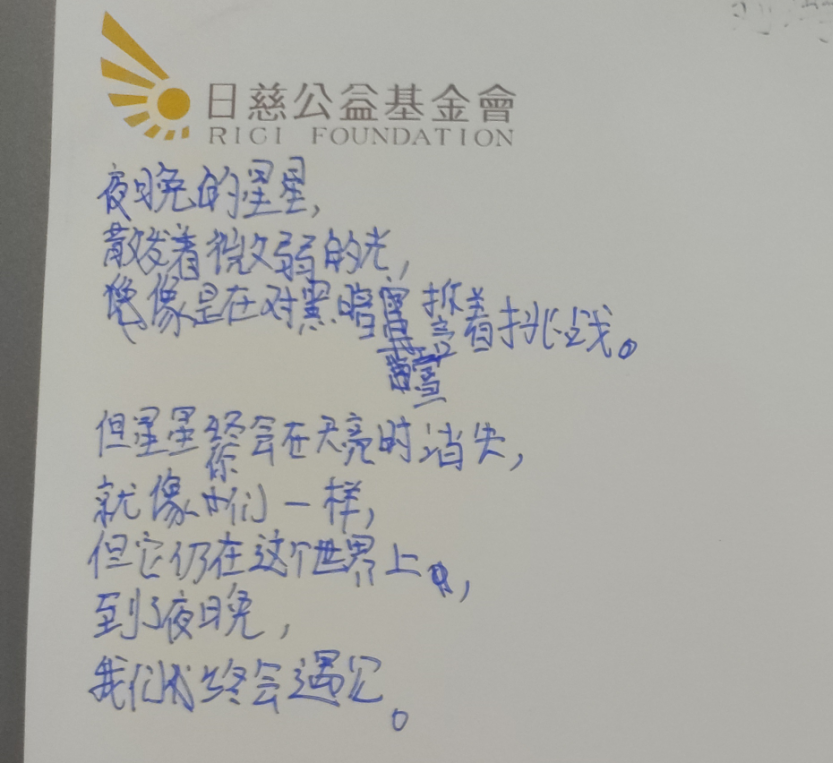 日慈公益基金會
RICI FOUNDATION
夜晚的星星,
散发着微弱的光,
像是在对黑暗着挑战。
但星星终会在天亮时消失,
就像你们一样,
但它仍在这个世界上,
到了夜晚,
我们终会遇见。